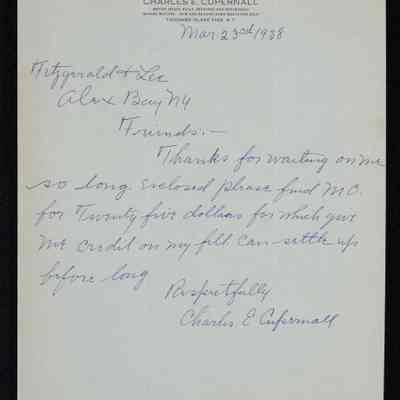 CHARLES E. CUPERNALL
THOUSAND ISLAND PARK, N.Y.
Mar 23rd 1938
Fitzgerald & Lee
Alex Bay NY
Friends:—
Thanks for waiting on me
so long Enclosed please find M.O.
for Twenty five dollars for which give
me credit on my
settle up
before long
Respectfully
Charles E Cupernall